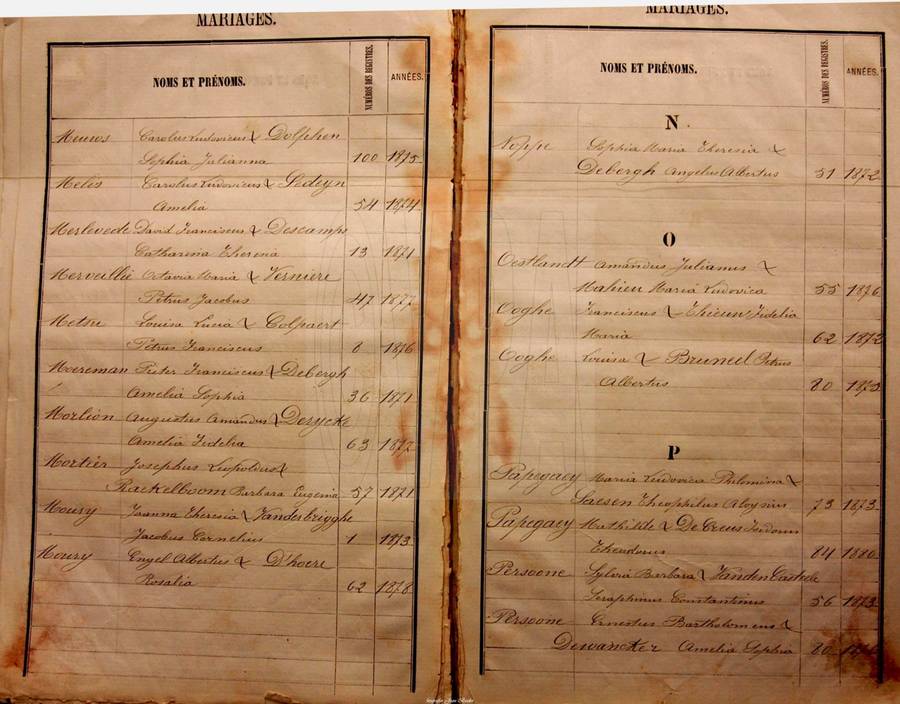 MARIAGES.
NOMS ET PRÉNOMS. NUMÉROS DES REGISTRES. ANNÉES.
Meuws Carolus Ludovicus & Dolphen
Sophia Julianna 100 1875
Melis Carolus Ludovicus & Sedeyn
Amelia 54 1874
Merlevede David Franciscus & Descamps
Catharina Theresia 13 1871
Merveillie Octavia Maria & Verniere
Petrus Jacobus 47 1877
Metsu Louisa Lucia & Colpaert
Petrus Franciscus 8 1876
Moereman Pieter Franciscus & Debergh
Amelia Sophia 36 1871
Morlion Augustus Amandus & Derycke
Amelia Fidelia 63 1877
Mortier Josephus Leopoldus &
Rackelboom Barbara Eugenia 57 1871
Moury Joanna Theresia & Vanderbrigghe
Jacobus Cornelius 1 1873
Moury Engel Albertus & D'hoere
Rosalia 62 1878
MARIAGES.
NOMS ET PRÉNOMS. NUMÉROS DES REGISTRES. ANNÉES.
N.
Noppe Sophia Maria Theresia &
Debergh Angelus Albertus 51 1872
O
Oestlandt Amandus Julianus &
Mahieu Maria Ludovica 55 1876
Ooghe Franciscus & Thieun Fidelia
Maria 62 1872
Ooghe Louisa & Bruneel Petrus
Albertus 80 1873
P
Papegaey Maria Ludovica Philomina &
Saesen Theophilus Aloysius 73 1873
Papegaey Mathilde & De Creus
Theodorus 84 1880
Persoone Sylvia Barbara & Vanden Casteele
Seraphinus Constantinus 56 1873
Persoone Ernestus Bartholomeus &
Dewancker Amelia Sophia 80